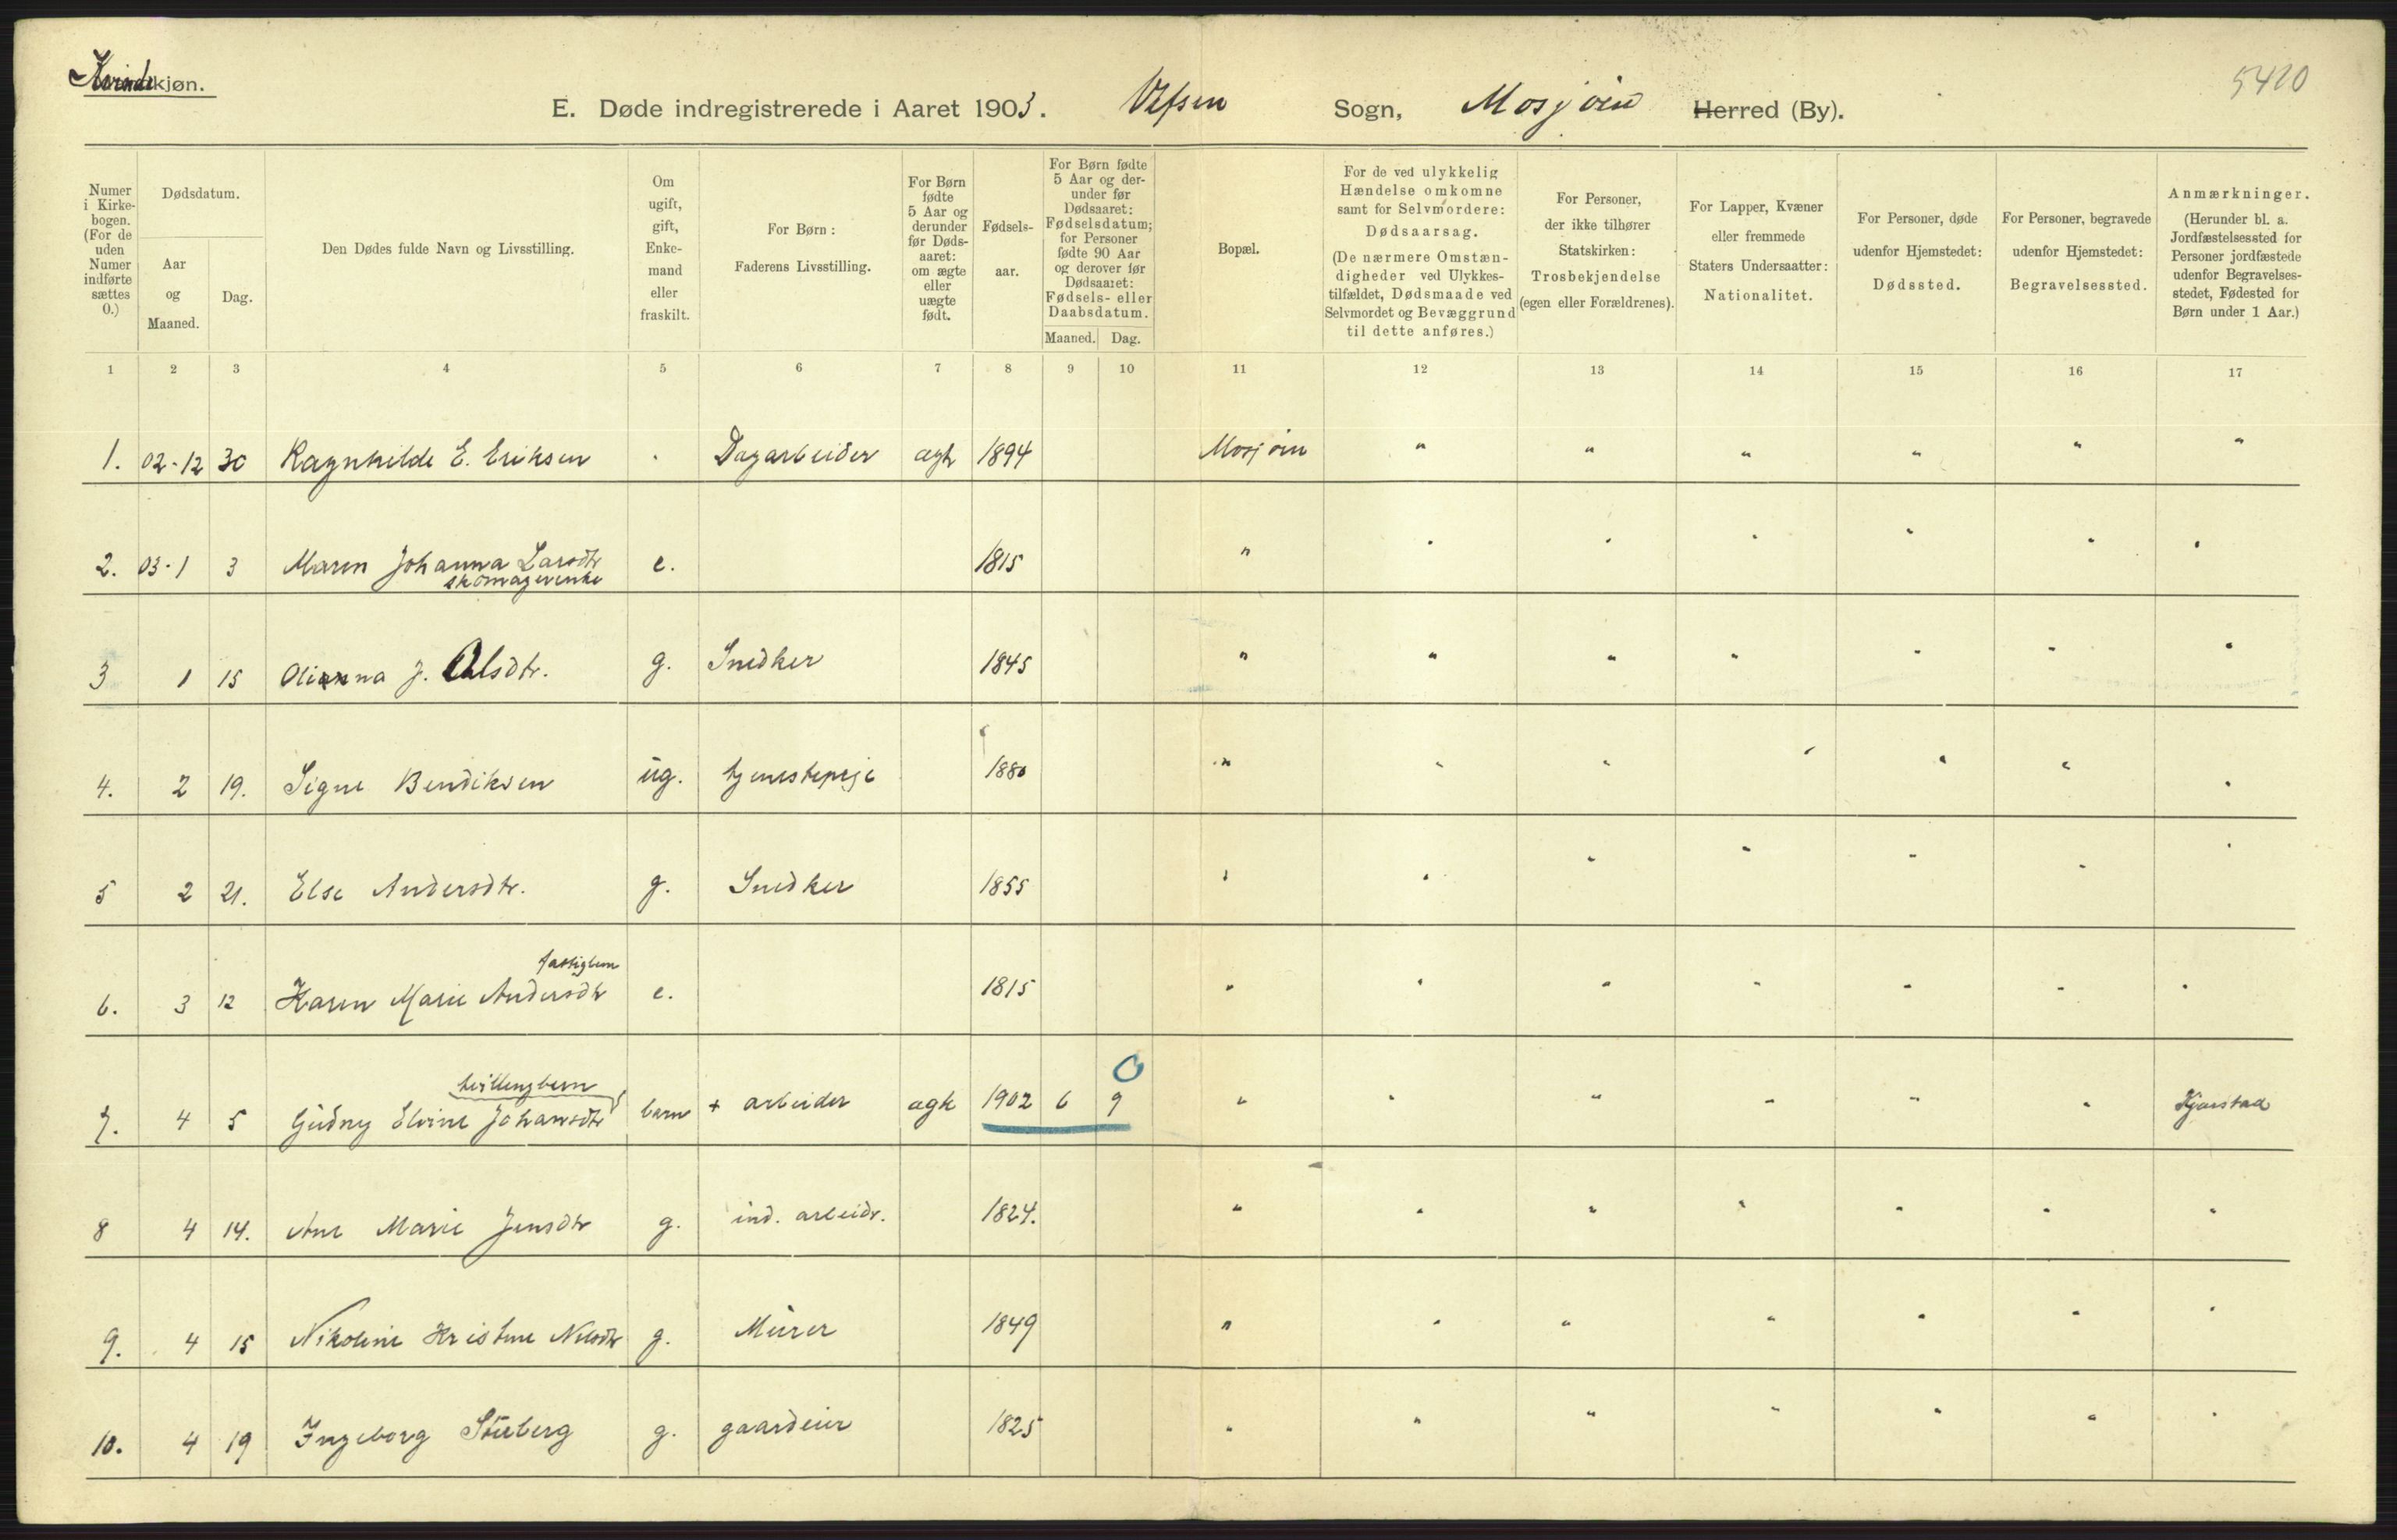 Kvindekjøn.
5420
E. Døde indregistrerede i Aaret 1903. Vefsen Sogn, Mosjøen Herred (By).
Numer i Kirke-bogen. (For de uden Numer indførte sættes 0.)
Dødsdatum.
Aar og Maaned.
Dag.
Den Dødes fulde Navn og Livsstilling.
Om ugift, gift, Enke-mand eller fraskilt.
For Børn: Faderens Livsstilling.
For Børn fødte 5 Aar og derunder før Døds-aaret: om ægte eller uægte født.
Fødsels-aar.
For Børn fødte 5 Aar og der-under før Dødsaaret: Fødselsdatum; for Personer fødte 90 Aar og derover før Dødsaaret: Fødsels- eller Daabsdatum.
Maaned. Dag.
Bopæl.
For de ved ulykkelig Hændelse omkomne samt for Selvmordere: Dødsaarsag. (De nærmere Omstæn-digheder ved Ulykkes-tilfældet, Dødsmaade ved Selvmordet og Bevæggrund til dette anføres.)
For Personer, der ikke tilhører Statskirken: Trosbekjendelse (egen eller Forældrenes).
For Lapper, Kvæner eller fremmede Staters Undersaatter: Nationalitet.
For Personer, døde udenfor Hjemstedet: Dødssted.
For Personer, begravede udenfor Hjemstedet: Begravelsessted.
Anmærkninger. (Herunder bl. a. Jordfæstelsessted for Personer jordfæstede udenfor Begravelses-stedet, Fødested for Børn under 1 Aar.)
1 2 3 4 5 6 7 8 9 10 11 12 13 14 15 16 17
1. 02-12 30 Ragnhilde E. Eriksen " Dagarbeider ægte 1894 Mosjøen " " " " " "
2. 03-1 3 Maren Johanna Larsdtr e. 1815 " " " " " " "
skomagerenke
3 1 15 Olianna J. Olsdtr. g. Snedker 1845 " " " " " " "
4. 2 19. Signe Bendiksen ug. tjenestepige 1880 " " " " " " "
5 2 21. Else Andersdtr. g. Snedker 1855 " " " " " " "
fattiglem
6. 3 12 Karen Marie Andersdtr e. 1815 " " " " " " "
tvillingbarn
7. 4 5 Gudny Elvine Johansdtr barn + arbeider ægte 1902 6 9 " " " " " " Kjærstad
8 4 14. Ane Marie Jensdtr g. ind. arbeidr. 1824. " " " " " " "
9. 4 15 Nikoline Kristine Nilsdtr g. Murer 1849 " " " " " " "
10. 4 19 Ingeborg g. gaardeier 1825 " " " " " " "